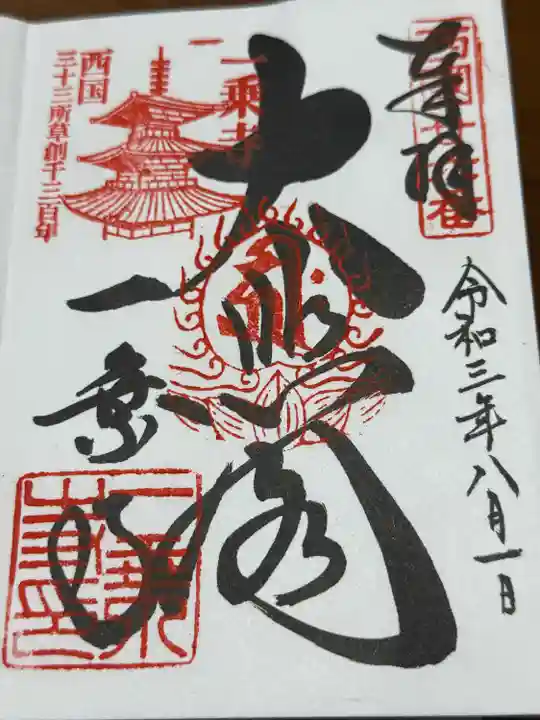 西国廿六番
奉拝
令和三年八月一日
大悲閣
一乗寺
一乗寺
西国
三十三所草創千三百年